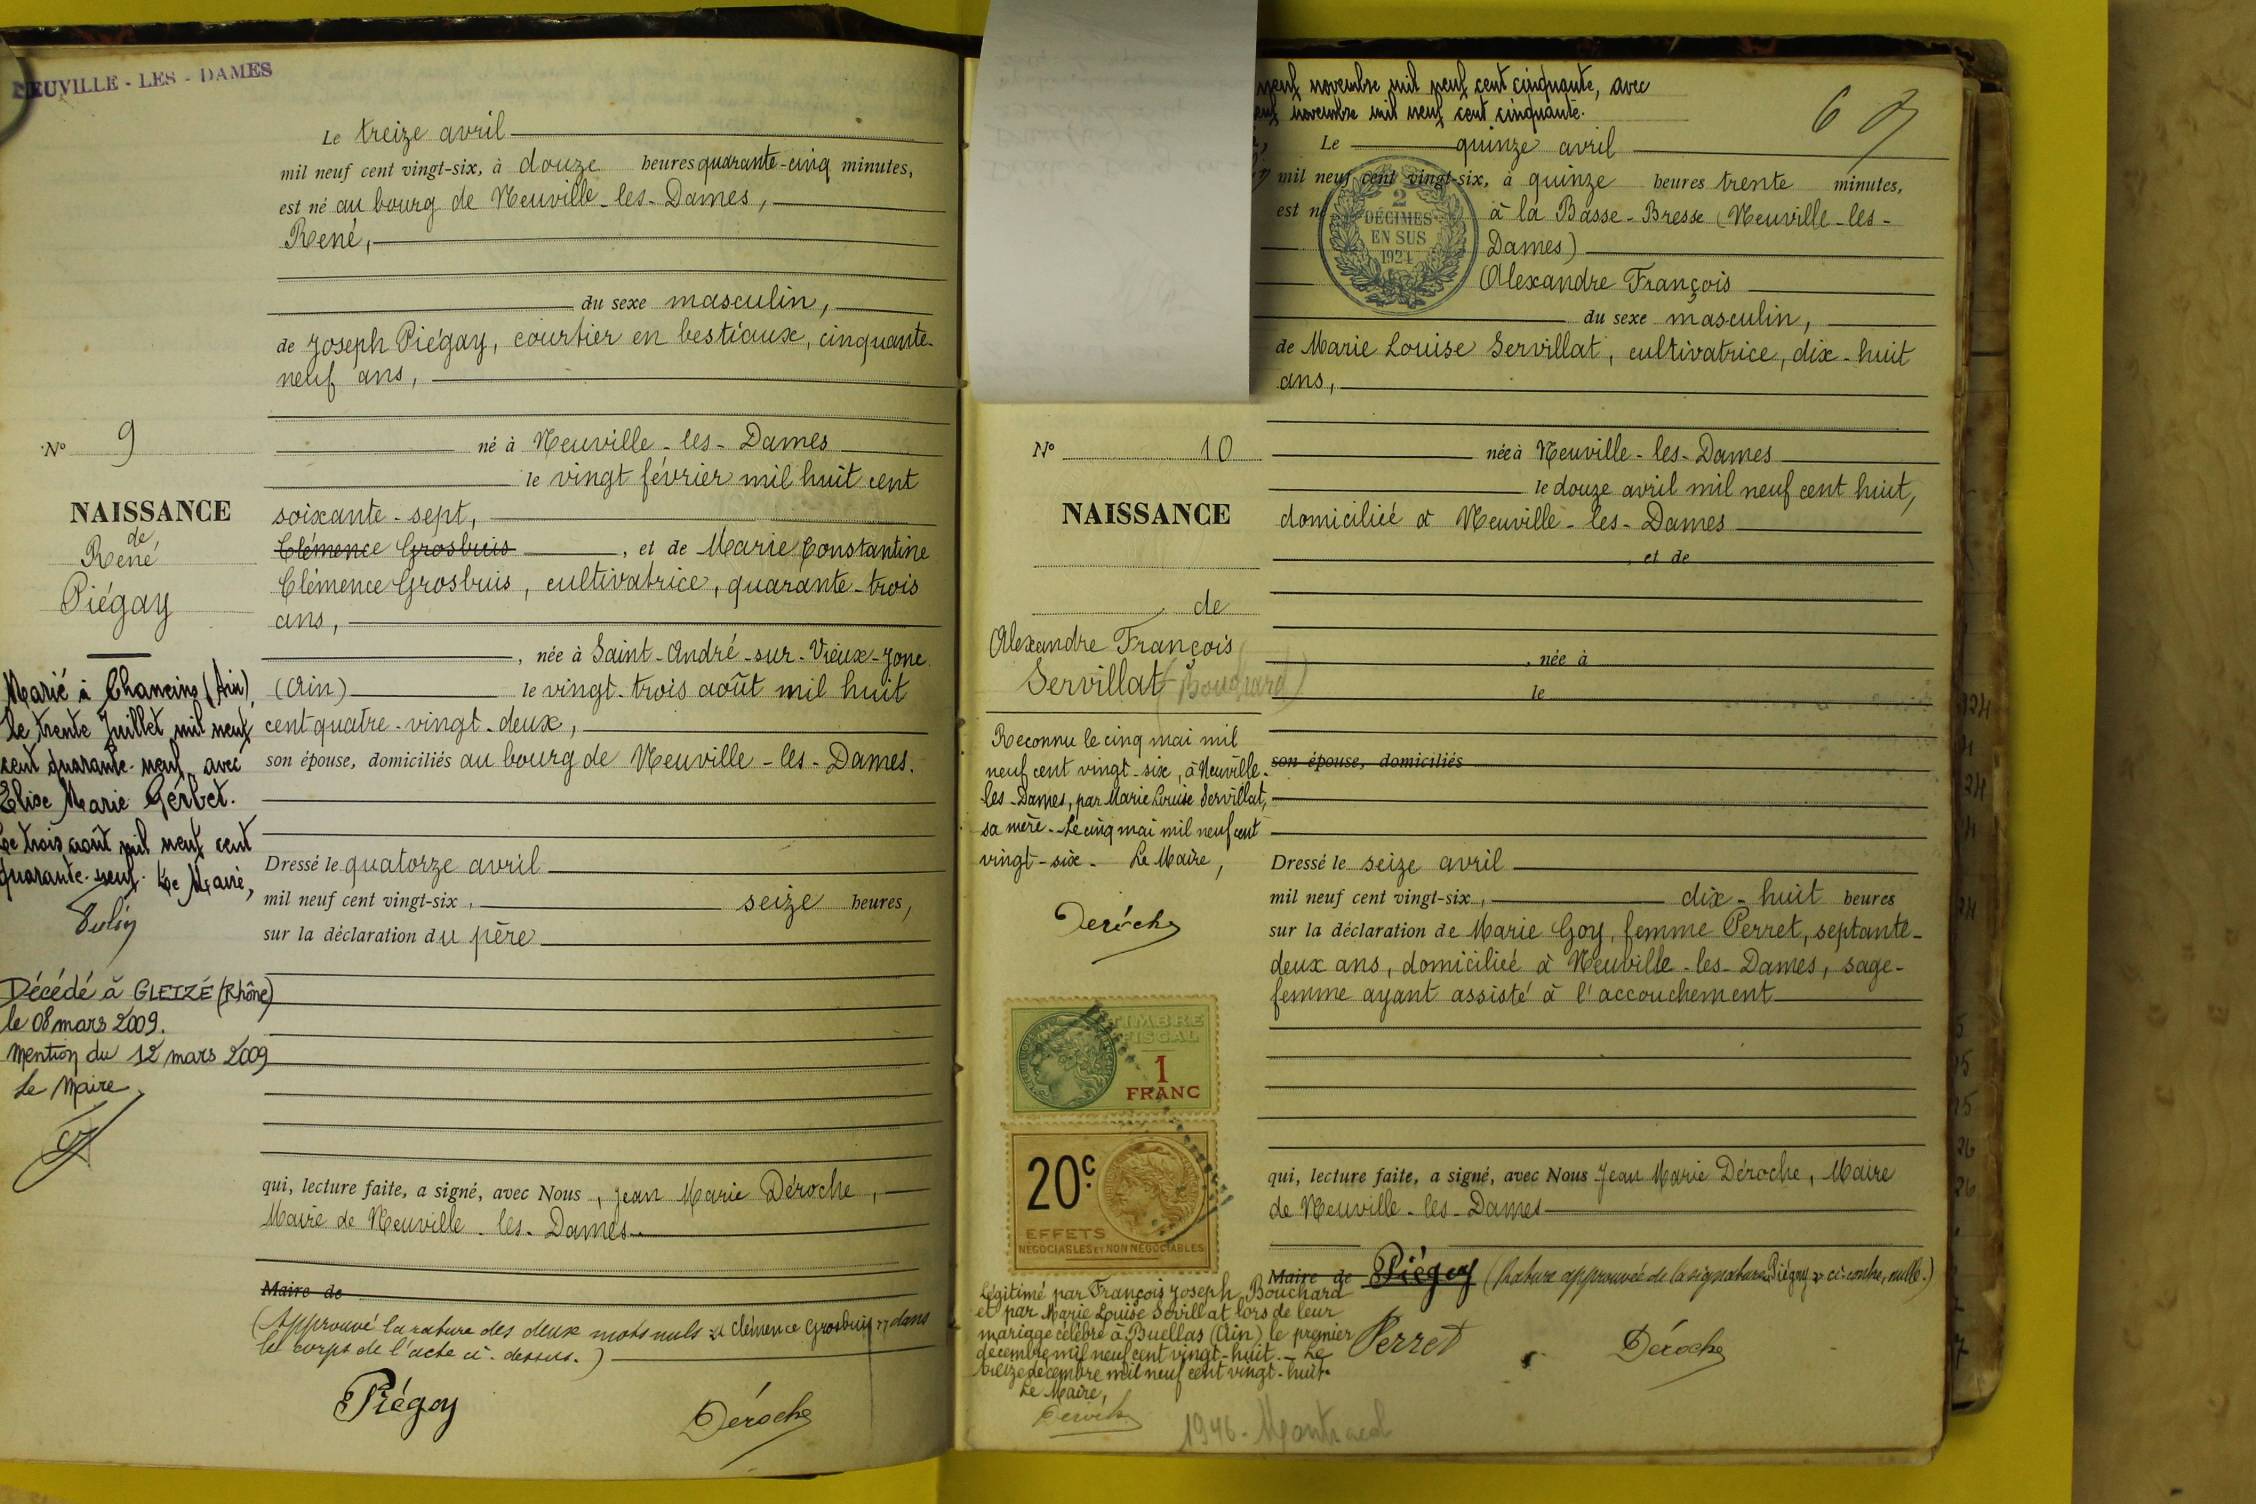 NEUVILLE - LES - DAMES
Le treize avril
mil neuf cent vingt-six, à douze heures quarante-cinq minutes,
est né au bourg de Neuville-les-Dames,
René,
du sexe masculin,
de Joseph Piégay, courtier en bestiaux, cinquante-
neuf ans,
né à Neuville-les-Dames
le vingt février mil huit cent
soixante-sept,
Clémence Grosbuis, et de Marie Constantine
Clémence Grosbuis, cultivatrice, quarante-trois
ans,
, née à Saint-André-sur-Vieux-Jonc
(Ain) le vingt-trois août mil huit
cent quatre-vingt-deux,
son épouse, domiciliés au bourg de Neuville-les-Dames.
Dressé le quatorze avril
mil neuf cent vingt-six, seize heures,
sur la déclaration du père
qui, lecture faite, a signé, avec Nous, Jean Marie Déroche,
Maire de Neuville-les-Dames
Maire de
(Approuvé la rature des deux mots nuls "Clémence Grosbuis" dans
le corps de l'acte ci-dessus.)
Piégay
Déroche
N° 9
NAISSANCE
de
René
Piégay
Marié à (Ain),
le trente Juillet mil neuf
cent quarante-neuf avec
Elise Marie Gerbet.
Le trois août mil neuf cent
quarante-neuf. Le Maire,
Décédé à GLEIZÉ (Rhône)
le 08 mars 2009.
Mention du 12 mars 2009
Le Maire
neuf novembre mil neuf cent cinquante, avec
novembre mil neuf cent cinquante.
6
Le quinze avril
mil neuf cent vingt-six, à quinze heures trente minutes,
est né à la Basse-Bresse (Neuville-les-
Dames)
Alexandre François
2
DÉCIMES
EN SUS
1924
du sexe masculin,
de Marie Louise Servillat, cultivatrice, dix-huit
ans,
née à Neuville-les-Dames
le douze avril mil neuf cent huit,
domiciliée à Neuville-les-Dames
, et de
, née à
le
son épouse, domiciliés
Dressé le seize avril
mil neuf cent vingt-six, dix-huit heures
sur la déclaration de Marie Goy, femme Perret, septante-
deux ans, domiciliée à Neuville-les-Dames, sage-
femme ayant assisté à l'accouchement
qui, lecture faite, a signé, avec Nous Jean Marie Déroche, Maire
de Neuville-les-Dames
Maire de Piégay (Rature approuvée de la signature "Piégay" ci-contre, nulle.)
Perret
Déroche
N° 10
NAISSANCE
de
Alexandre François
Servillat (Bouchard)
Reconnu le cinq mai mil
neuf cent vingt-six, à Neuville-
les-Dames, par Marie Louise Servillat,
sa mère. Le cinq mai mil neuf cent
vingt-six. Le Maire,
Déroche
TIMBRE
FISCAL
1
FRANC
20c
EFFETS
NÉGOCIABLES ET NON NÉGOCIABLES
Légitimé par François Joseph Bouchard
et par Marie Louise Servillat lors de leur
mariage célébré à Buellas (Ain) le premier
décembre mil neuf cent vingt-huit. Le
treize décembre mil neuf cent vingt-huit.
Le Maire,
Déroche
1946 - Montracol